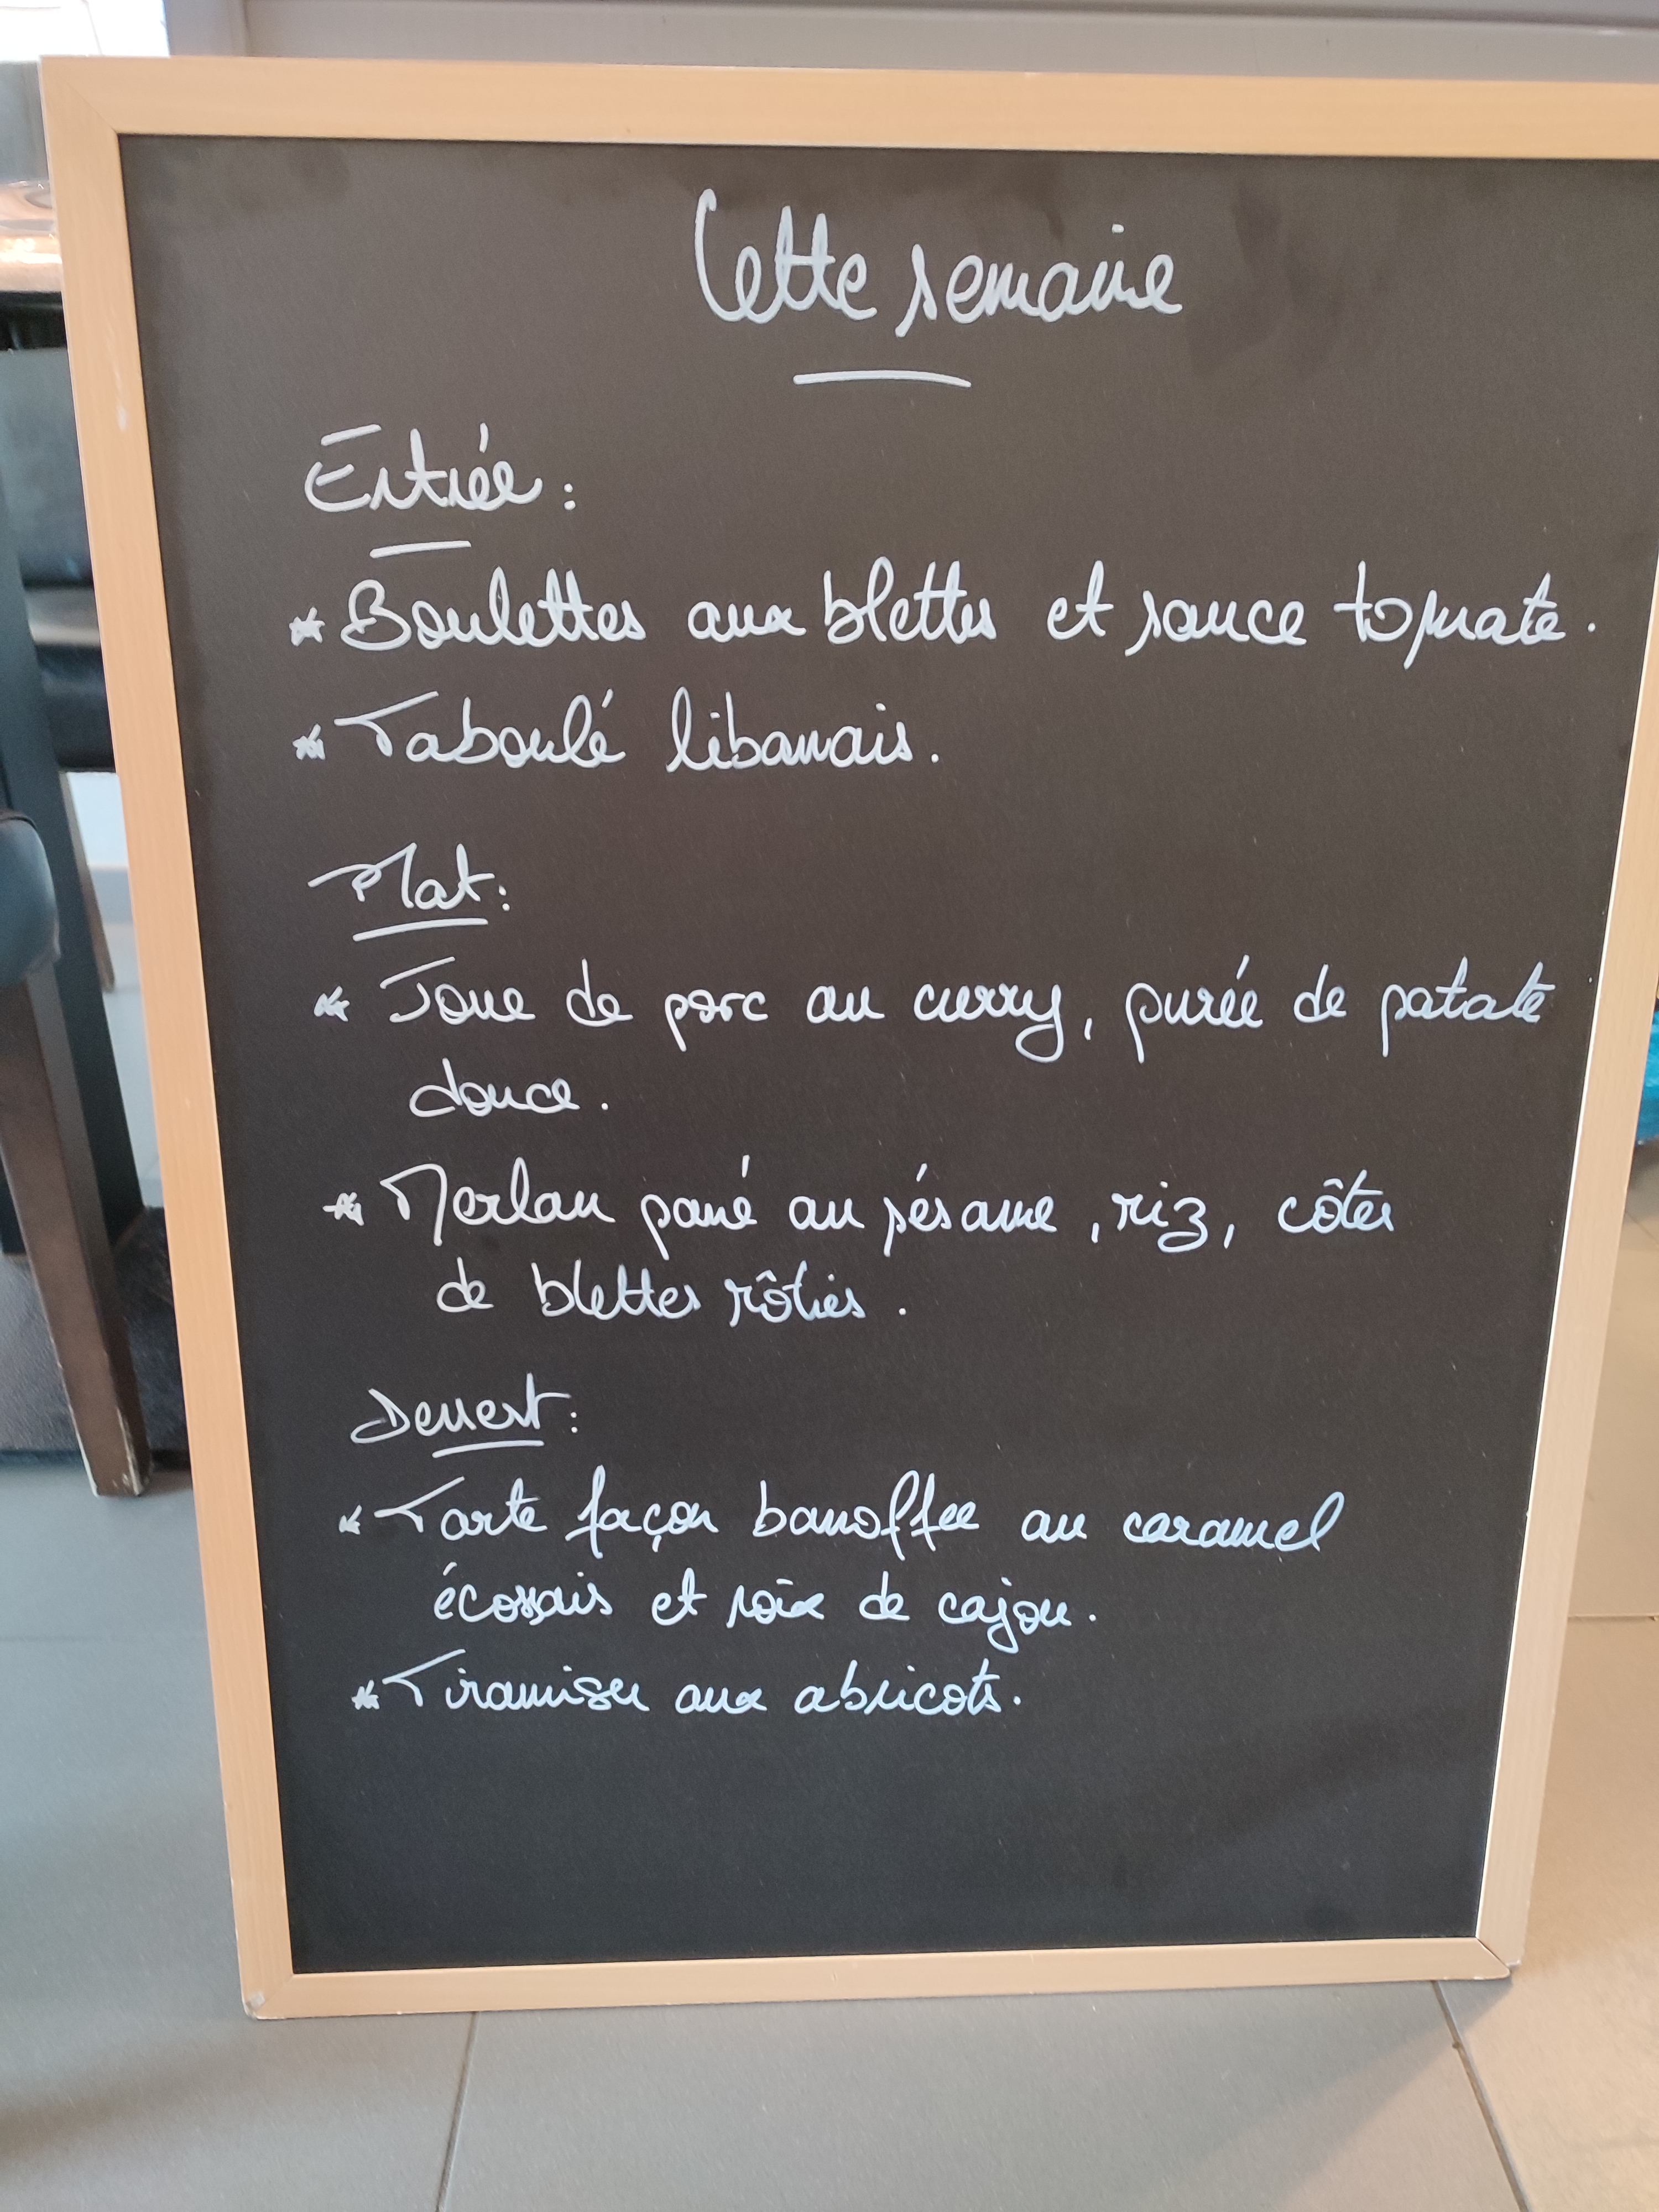 Cette semaine
Entrée :
* Boulettes aux blettes et sauce tomate.
* Taboulé libanais.
Plat :
* Joue de porc au curry, purée de patate
douce.
* Merlan pané au sésame, riz, côtes
de blettes rôties.
Dessert :
* Tarte façon banoffee au caramel
écossais et noix de cajou.
* Tiramisu aux abricots.